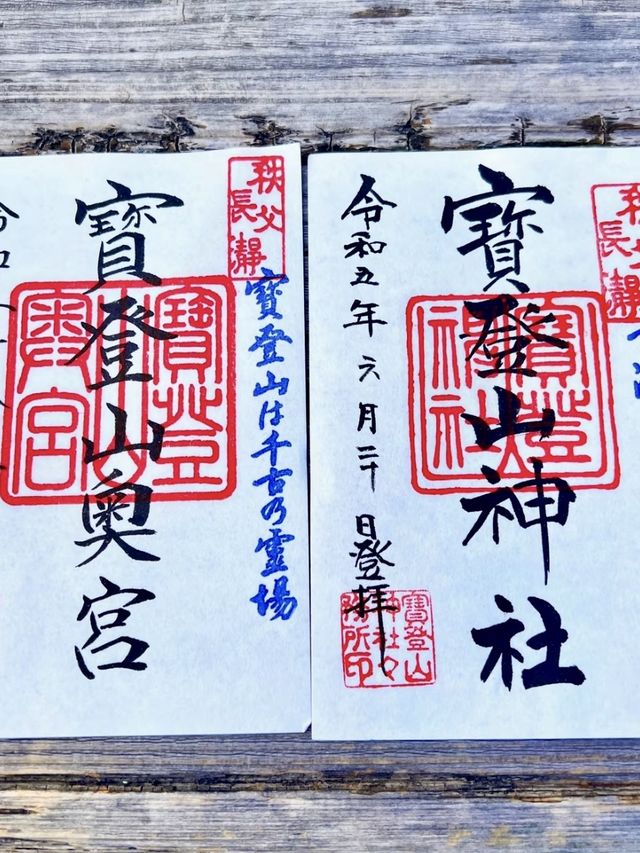 秩父
長瀞
寶登山神社
寶登
神社
令和五年六月二十日登拝
寶登山
神社々
務所印
秩父
長瀞
寶登山は千古乃霊場
寶登山奥宮
寶登山
奥宮
令和